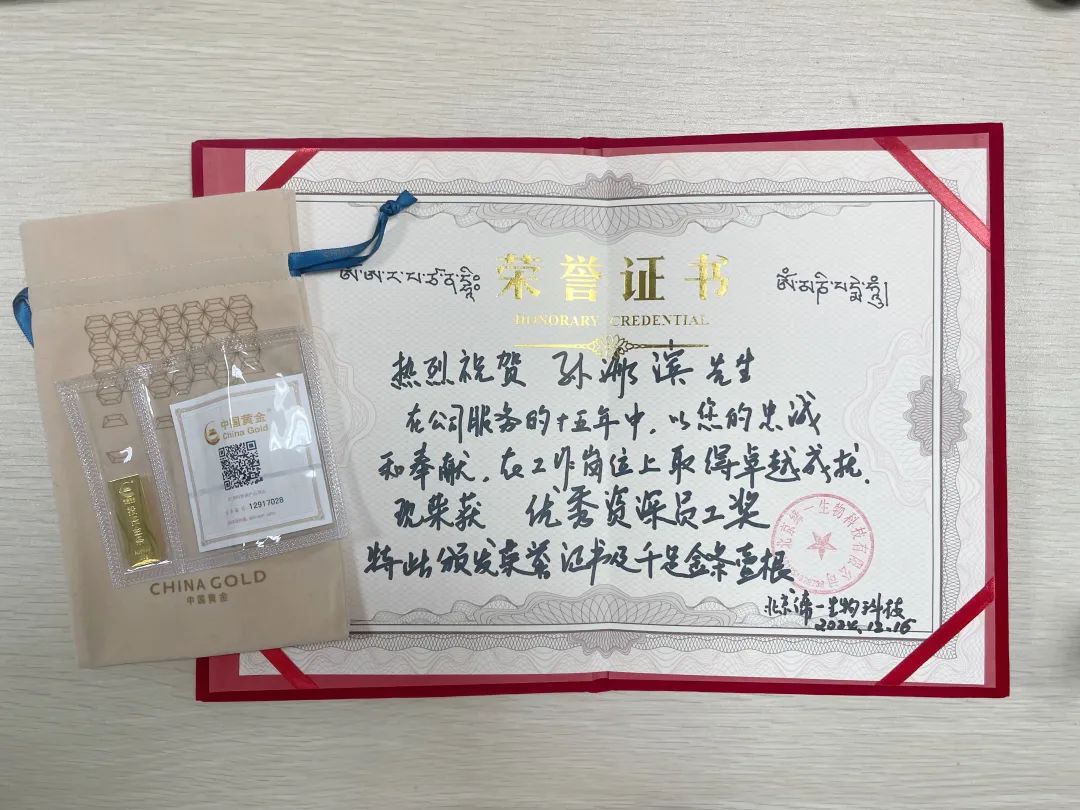 荣誉证书
HONORARY CREDENTIAL
热烈祝贺 孙 滨 先生
在公司服务的十五年中，以您的忠诚
和奉献，在工作岗位上取得卓越成就，
现荣获 优秀资深员工奖
特此颁发荣誉证书及千足金条壹根
北京 一生物科技
2024.12.16
北京 一生物科技有限公司
中国黄金
China Gold
12917028
CHINA GOLD
中国黄金